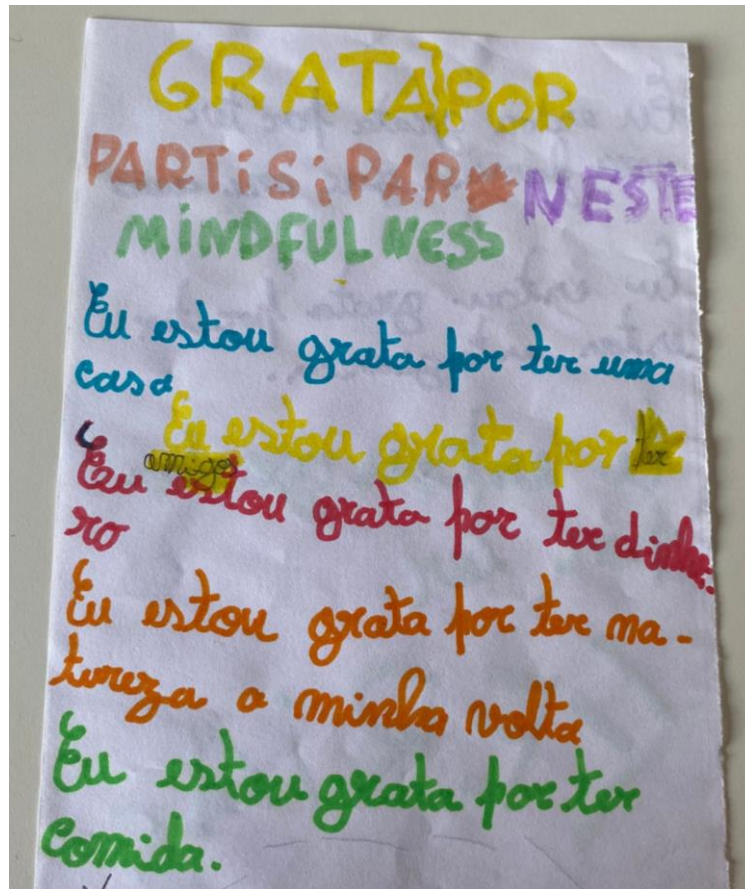 GRATA}POR
PARTiSiPAR NESTE
MiNDFULNESS
Eu estou grata por ter uma
casa
Eu estou grata por ter
amigos
Eu estou grata por ter dinhe-
ro
Eu estou grata por ter na-
tureza a minha volta
Eu estou grata por ter
comida.